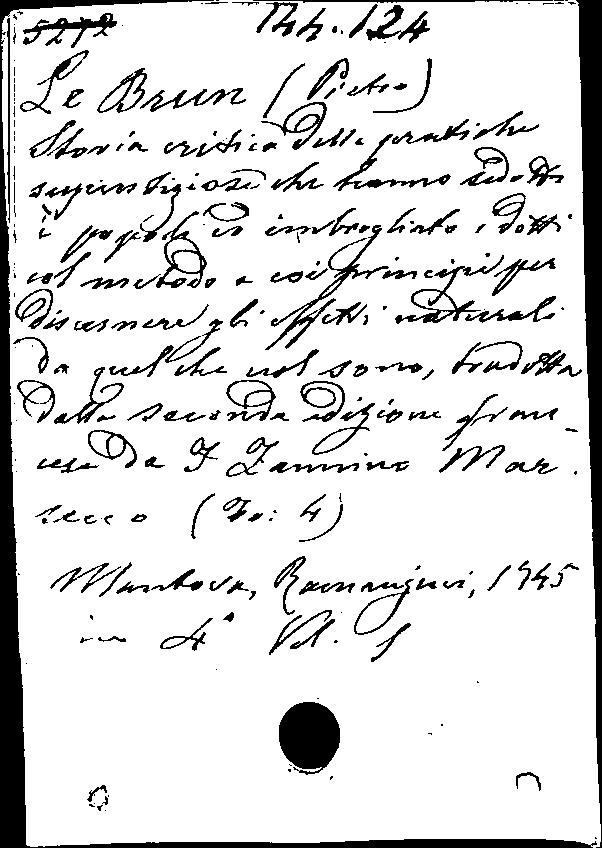 5272 144.124
Le Brun (Pietro)
Storia critica delle pratiche
superstiziose che hanno sedotti
i popoli ed imbrogliato i dotti
col metodo e coi principi per
discernere gli effetti naturali
da quel che nol sono, tradotta
dalla seconda edizione fran-
cese da F Zannino Mar
secco (To: 4)
Mantova, 1745
in 4° Vol.